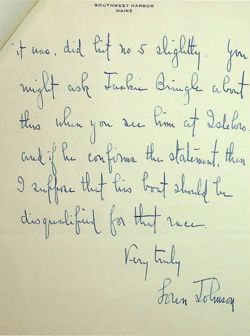 SOUTHWEST HARBOR
MAINE
it was. did hit no 5 slightly. You
might ask Juckie Bringle about
this when you see him at Isleboro
and if he confirms the statement, then
I suppose that his boat should be
disqualified for that race.
Very truly
Loren Johnson